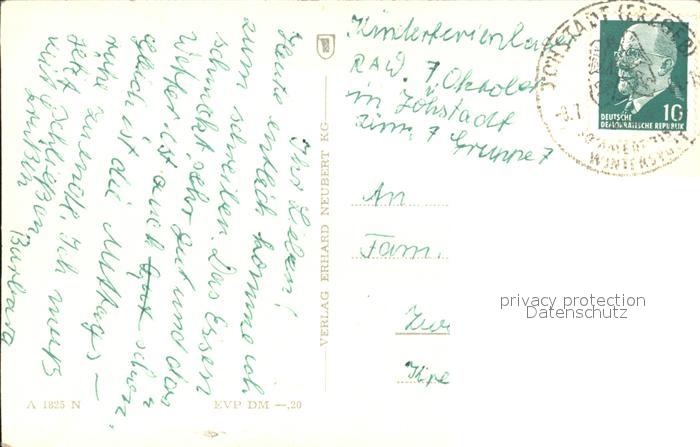 Ihr Lieben!
Heute entlich komme ich
zum schreiben. Das Essen
schmeckt sehr gut und das
Wetter ist auch schön.
Gleich ist die Mittags-
ruhe zuende. Ich muß
jetzt schließen
Barbara
Kinderferienlager
RAW. 7. Oktober
in Jöhstadt
Zimm. 7 Gruppe 7
An
Fam.
VERLAG ERHARD NEUBERT KG
A 1825 N
EVP DM —,20
DEUTSCHE
DEMOKRATISCHE REPUBLIK
10
JÖHSTADT (ERZGEB)
privacy protection
Datenschutz